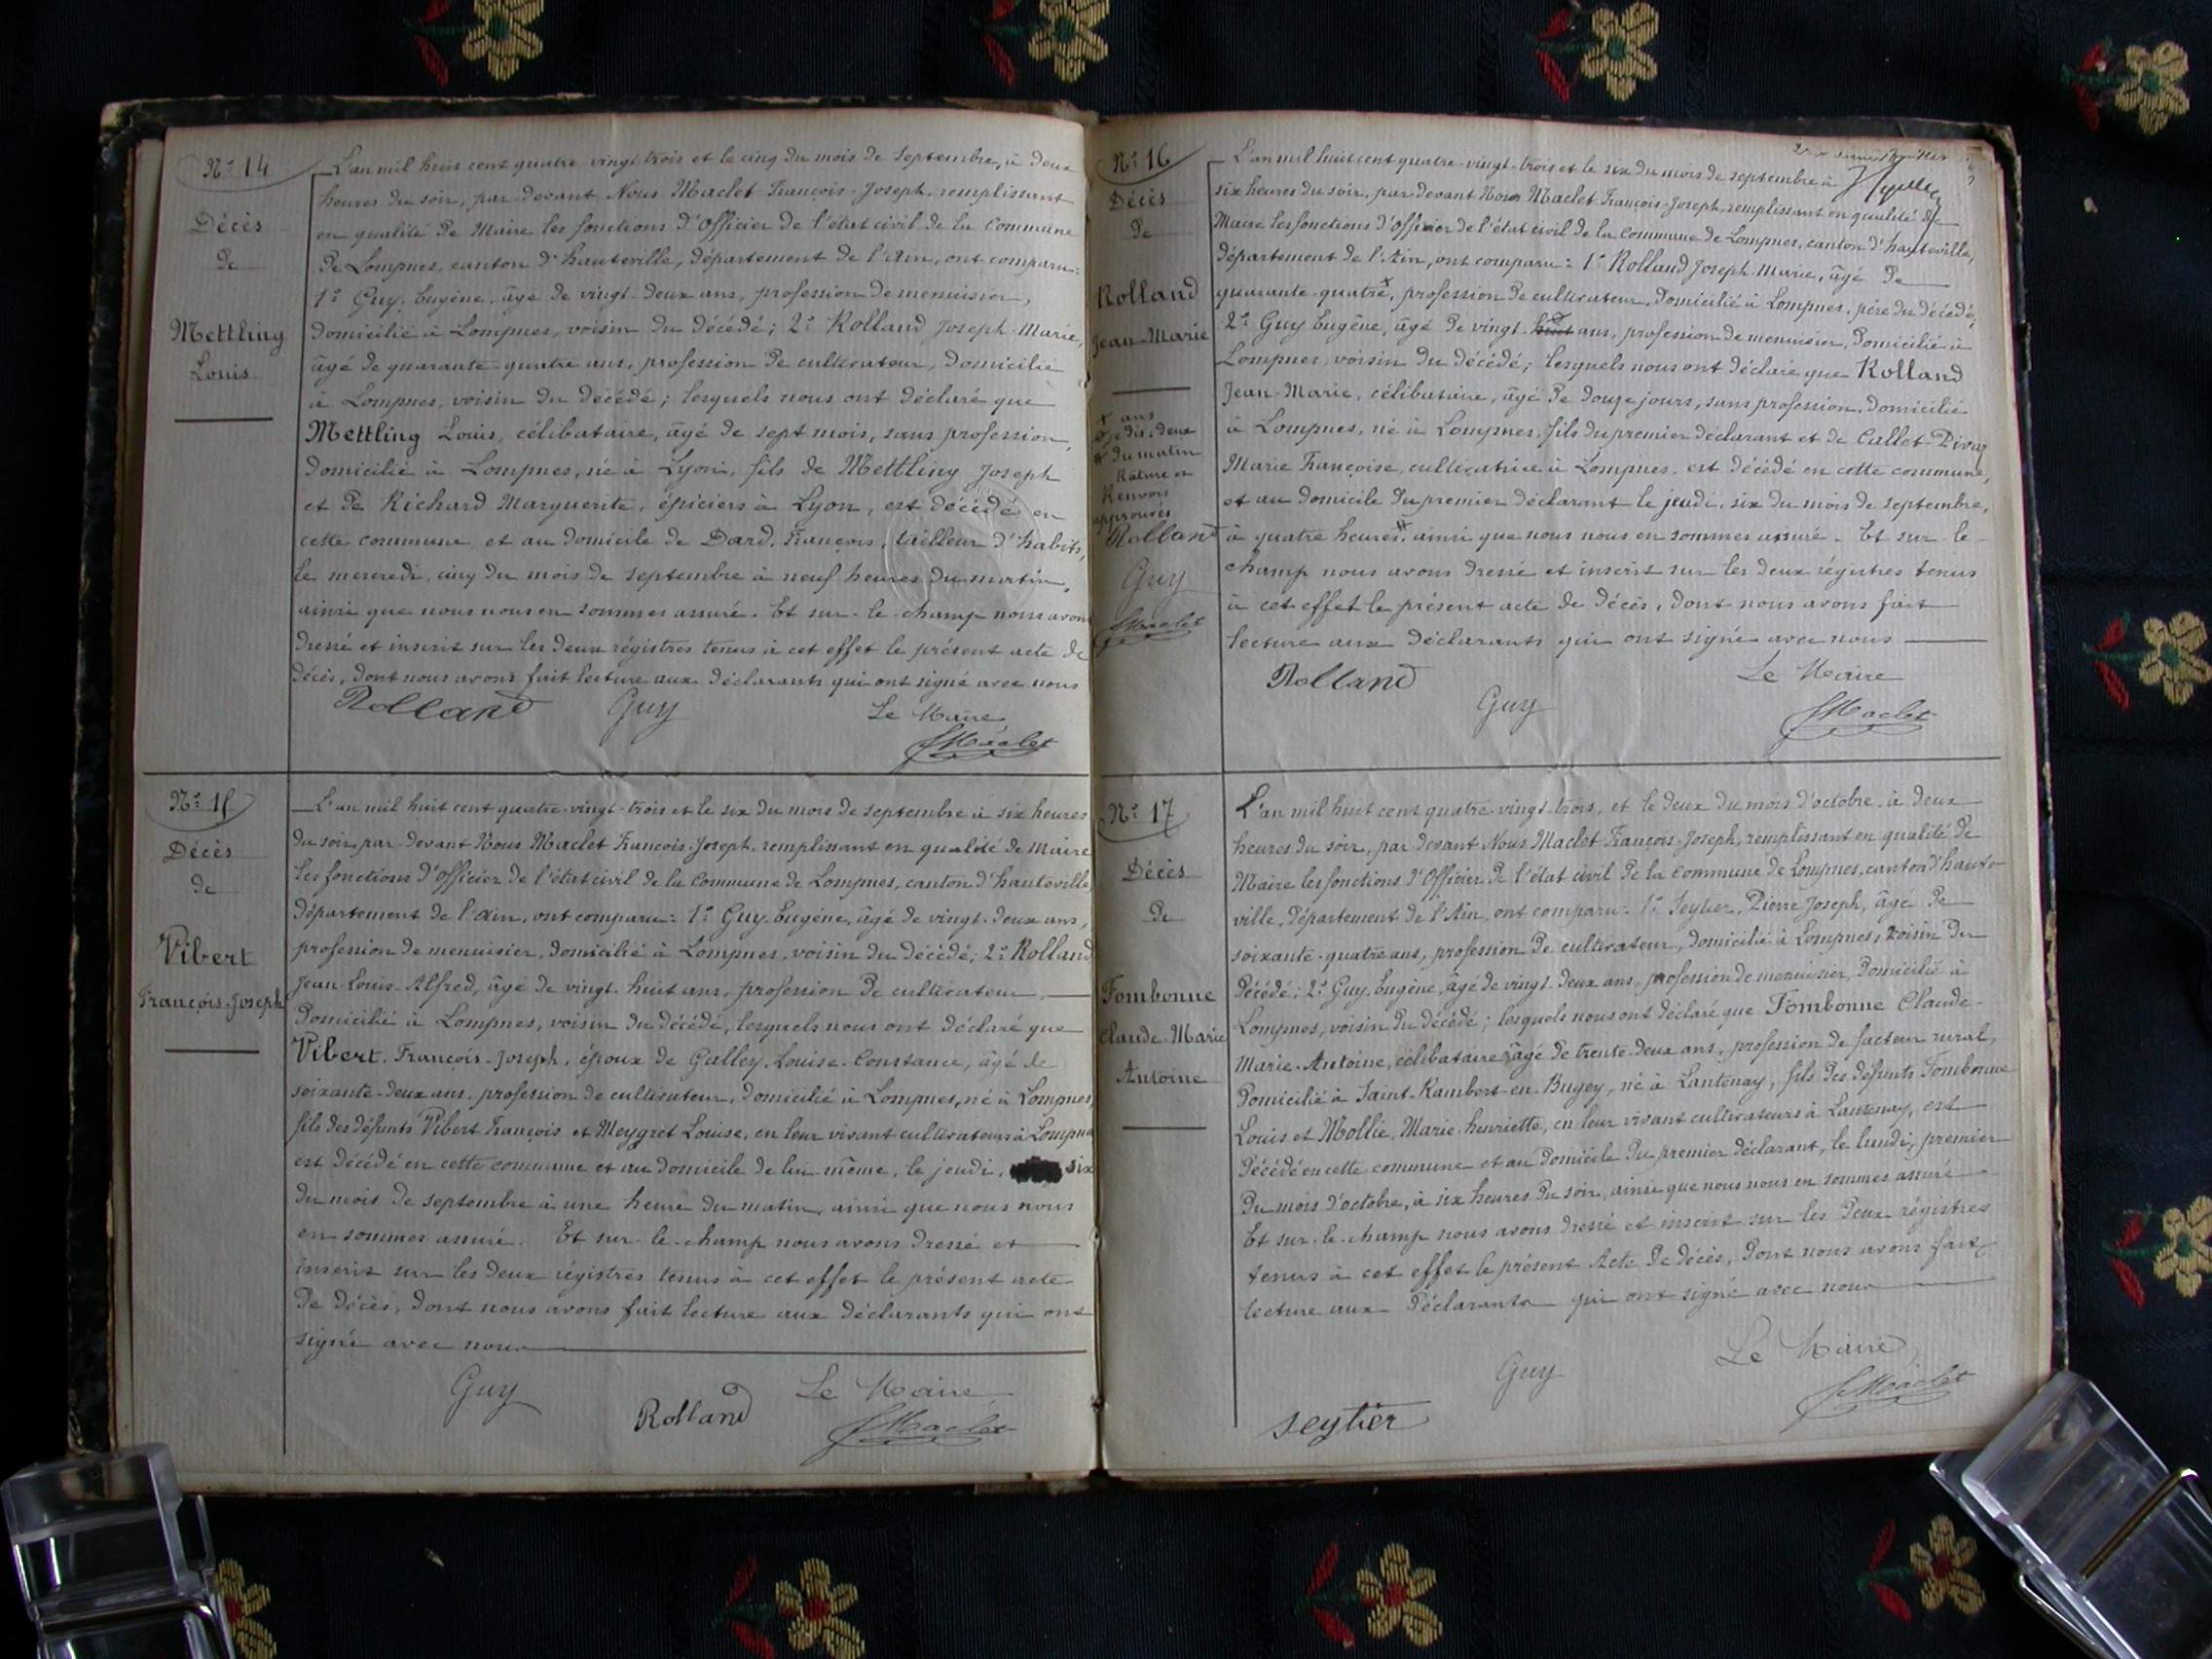 Nº 14
Décès
de
Mettling
Louis
L'an mil huit cent quatre-vingt-trois et le cinq du mois de septembre, à deux
heures du soir, par devant Nous Maclet François-Joseph, remplissant
en qualité de Maire les fonctions d'Officier de l'état civil de la Commune
de Lompnes, canton d'hauteville, département de l'Ain, ont comparu:
1º Guy, Eugène, âgé de vingt-deux ans, profession de menuisier,
domicilié à Lompnes, voisin du décédé; 2º Rolland Joseph-Marie,
âgé de quarante-quatre ans, profession de cultivateur, domicilié
à Lompnes, voisin du décédé; lesquels nous ont déclaré que
Mettling Louis, célibataire, âgé de sept mois, sans profession,
domicilié à Lompnes, né à Lyon, fils de Mettling Joseph
et de Richard Marguerite, épiciers à Lyon, est décédé en
cette commune et au domicile de Dard, François, tailleur d'habits,
le mercredi, cinq du mois de septembre à neuf heures du matin,
ainsi que nous nous en sommes assuré. Et sur-le-champ nous avons
dressé et inscrit sur les deux régistres tenus à cet effet le présent acte de
décès, dont nous avons fait lecture aux déclarants qui ont signé avec nous
Rolland Guy Le Maire
Maclet
Nº 15
Décès
de
Vibert
François-Joseph
L'an mil huit cent quatre-vingt-trois et le six du mois de septembre à six heures
du soir, par-devant Nous Maclet François-Joseph, remplissant en qualité de Maire
les fonctions d'Officier de l'état civil de la Commune de Lompnes, canton d'hauteville,
département de l'Ain, ont comparu: 1º Guy Eugène, âgé de vingt-deux ans,
profession de menuisier, domicilié à Lompnes, voisin du décédé; 2º Rolland
Jean-Louis-Alfred, âgé de vingt-huit ans, profession de cultivateur,
domicilié à Lompnes, voisin du décédé, lesquels nous ont déclaré que
Vibert, François-Joseph, époux de Galley Louise-Constance, âgé de
soixante-deux ans, profession de cultivateur, domicilié à Lompnes, né à Lompnes,
fils des défunts Vibert François et Meygret Louise, en leur vivant cultivateurs à Lompnes
est décédé en cette commune et au domicile de lui-même, le jeudi, six
du mois de septembre à une heure du matin, ainsi que nous nous
en sommes assuré. Et sur-le-champ nous avons dressé et
inscrit sur les deux régistres tenus à cet effet le présent acte
de décès, dont nous avons fait lecture aux déclarants qui ont
signé avec nous
Guy Rolland Le Maire
Maclet
Nº 16
Décès
de
Rolland
Jean-Marie
x ans
deux
# du matin
Rature et
Renvois
approuvés
Rolland
Guy
Maclet
L'an mil huit cent quatre-vingt-trois et le six du mois de septembre à
six heures du soir, par-devant Nous Maclet François-Joseph, remplissant en qualité de
Maire les fonctions d'Officier de l'état civil de la Commune de Lompnes, canton d'hauteville,
département de l'Ain, ont comparu: 1º Rolland Joseph-Marie, âgé de
quarante-quatre x, profession de cultivateur, domicilié à Lompnes, père du décédé;
2º Guy Eugène, âgé de vingt-huit ans, profession de menuisier, domicilié à
Lompnes, voisin du décédé; lesquels nous ont déclaré que Rolland
Jean-Marie, célibataire, âgé de douze jours, sans profession, domicilié
à Lompnes, né à Lompnes, fils du premier déclarant et de Callet-Pivaz
Marie Françoise, cultivatrice à Lompnes, est décédé en cette commune,
et au domicile du premier déclarant le jeudi, six du mois de septembre,
à quatre heures #, ainsi que nous nous en sommes assuré. Et sur-le-
champ nous avons dressé et inscrit sur les deux régistres tenus
à cet effet le présent acte de décès, dont nous avons fait
lecture aux déclarants qui ont signé avec nous
Rolland Guy Le Maire
Maclet
Nº 17
Décès
de
Fombonne
Claude-Marie
Antoine
L'an mil huit cent quatre-vingt-trois, et le deux du mois d'octobre, à deux
heures du soir, par devant Nous Maclet François-Joseph, remplissant en qualité de
Maire les fonctions d'Officier de l'état civil de la Commune de Lompnes, canton d'haute-
ville, département de l'Ain, ont comparu: 1º Seytier, Pierre Joseph, âgé de
soixante-quatre ans, profession de cultivateur, domicilié à Lompnes, voisin du
décédé; 2º Guy Eugène, âgé de vingt-deux ans, profession de menuisier, domicilié à
Lompnes, voisin du décédé; lesquels nous ont déclaré que Fombonne Claude-
Marie-Antoine, célibataire, âgé de trente-deux ans, profession de facteur rural,
domicilié à Saint-Rambert-en-Bugey, né à Lantenay, fils des défunts Fombonne
Louis et Mollie, Marie-henriette, en leur vivant cultivateurs à Lantenay, est
décédé en cette commune et au domicile du premier déclarant, le lundi, premier
du mois d'octobre, à six heures du soir, ainsi que nous nous en sommes assuré
Et sur-le-champ nous avons dressé et inscrit sur les deux régistres
tenus à cet effet le présent Acte de décès, dont nous avons fait
lecture aux déclarants qui ont signé avec nous
Guy Le Maire
Seytier Maclet